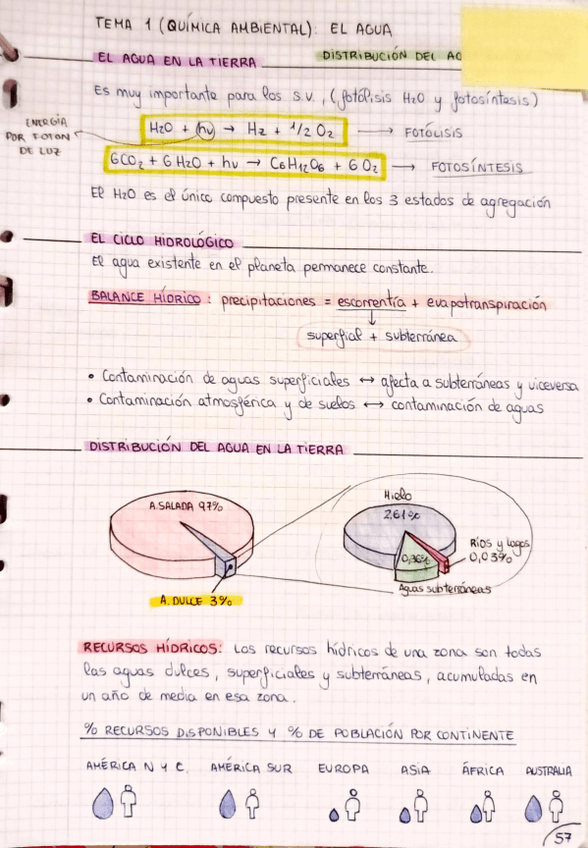 TEMA 1 (QUÍMICA AMBIENTAL): EL AGUA
EL AGUA EN LA TIERRA
DISTRIBUCIÓN DEL AG
Es muy importante para los s.v., (fotólisis H2O y fotosíntesis)
ENERGÍA
POR FOTÓN
DE LUZ
H2O + hν → H2 + 1/2 O2 → FOTÓLISIS
6CO2 + 6H2O + hν → C6H12O6 + 6O2 → FOTOSÍNTESIS
El H2O es el único compuesto presente en los 3 estados de agregación
EL CICLO HIDROLÓGICO
El agua existente en el planeta permanece constante.
BALANCE HÍDRICO: precipitaciones = escorrentía + evapotranspiración
↓
superfial + subterránea
• Contaminación de aguas superficiales ↔ afecta a subterráneas y viceversa
• Contaminación atmosférica y de suelos ↔ contaminación de aguas
DISTRIBUCIÓN DEL AGUA EN LA TIERRA
A.SALADA 97%
A. DULCE 3%
Hielo
2,61%
0,36%
Ríos y lagos
0,03%
Aguas subterráneas
RECURSOS HÍDRICOS: Los recursos hídricos de una zona son todas
las aguas dulces, superficiales y subterráneas, acumuladas en
un año de media en esa zona.
% RECURSOS DISPONIBLES Y % DE POBLACIÓN POR CONTINENTE
AMÉRICA N y C. AMÉRICA SUR EUROPA ASIA ÁFRICA AUSTRALIA
57